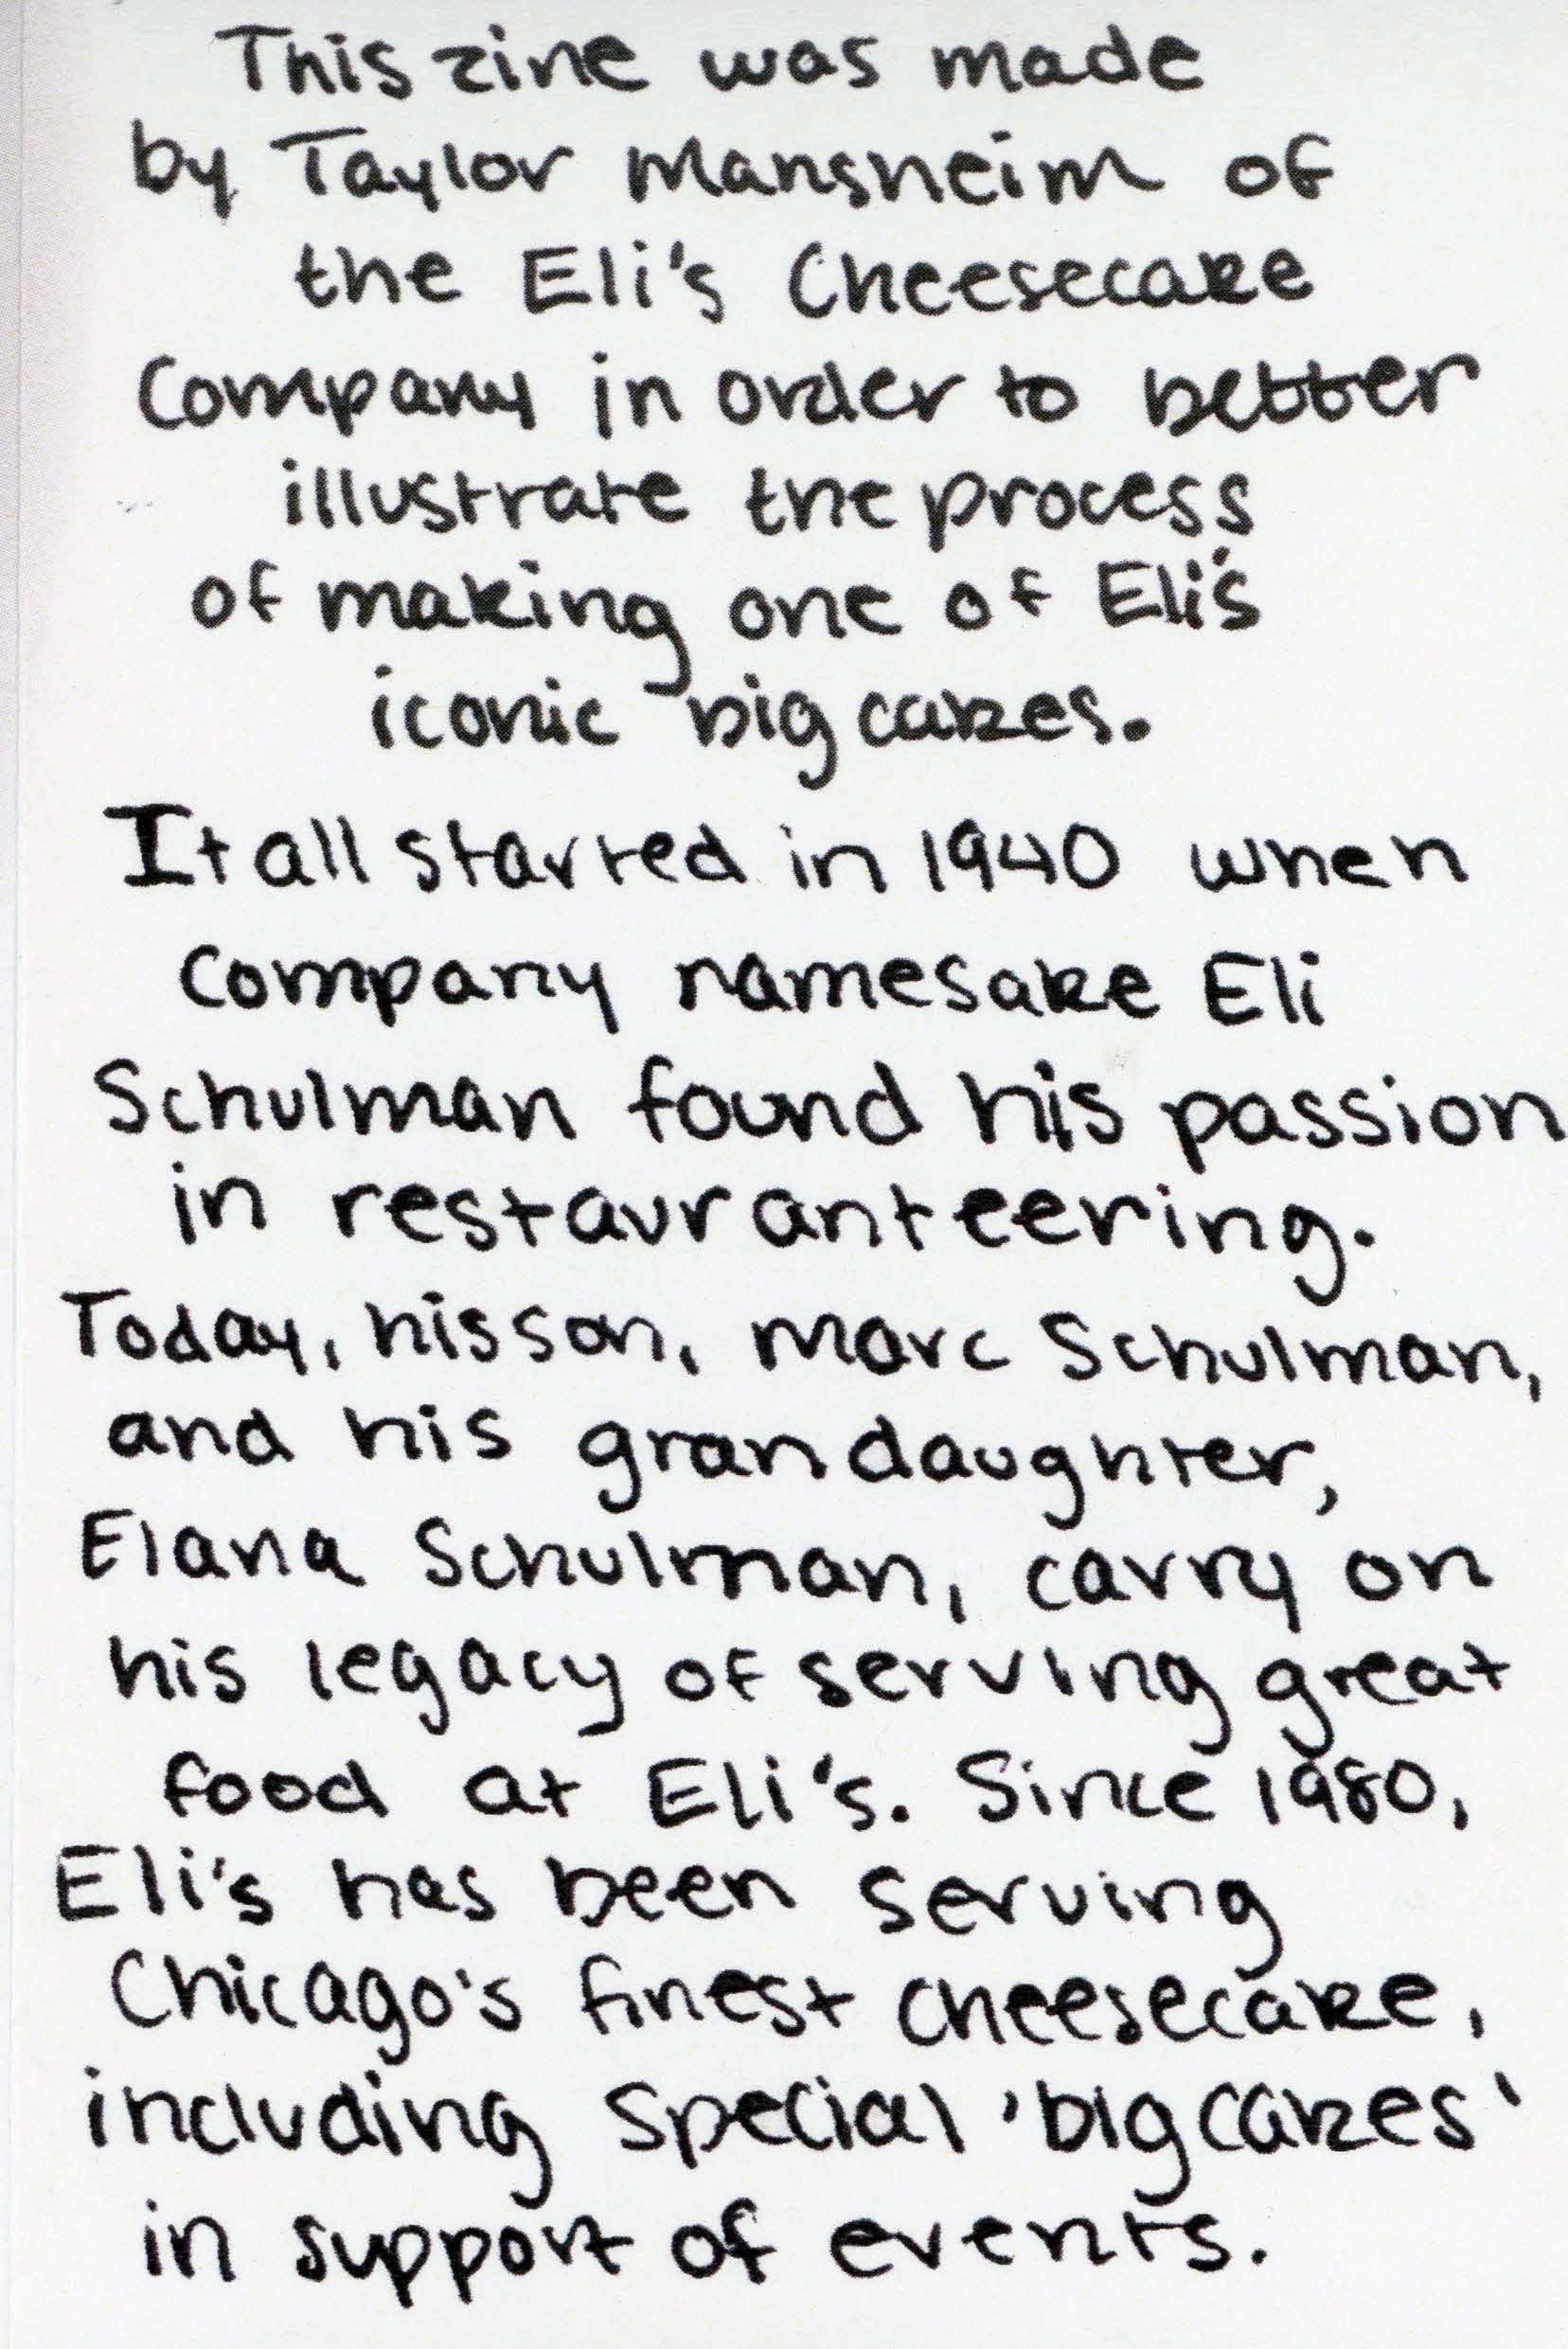 This zine was made
by Taylor Mansheim of
the Eli's Cheesecake
Company in order to better
illustrate the process
of making one of Eli's
iconic big cakes.
It all started in 1940 when
Company namesake Eli
Schulman found his passion
in restauranteering.
Today, his son, Marc Schulman,
and his grandaughter,
Elana Schulman, carry on
his legacy of serving great
food at Eli's. Since 1980,
Eli's has been serving
Chicago's finest cheesecake,
including special 'big cakes'
in support of events.